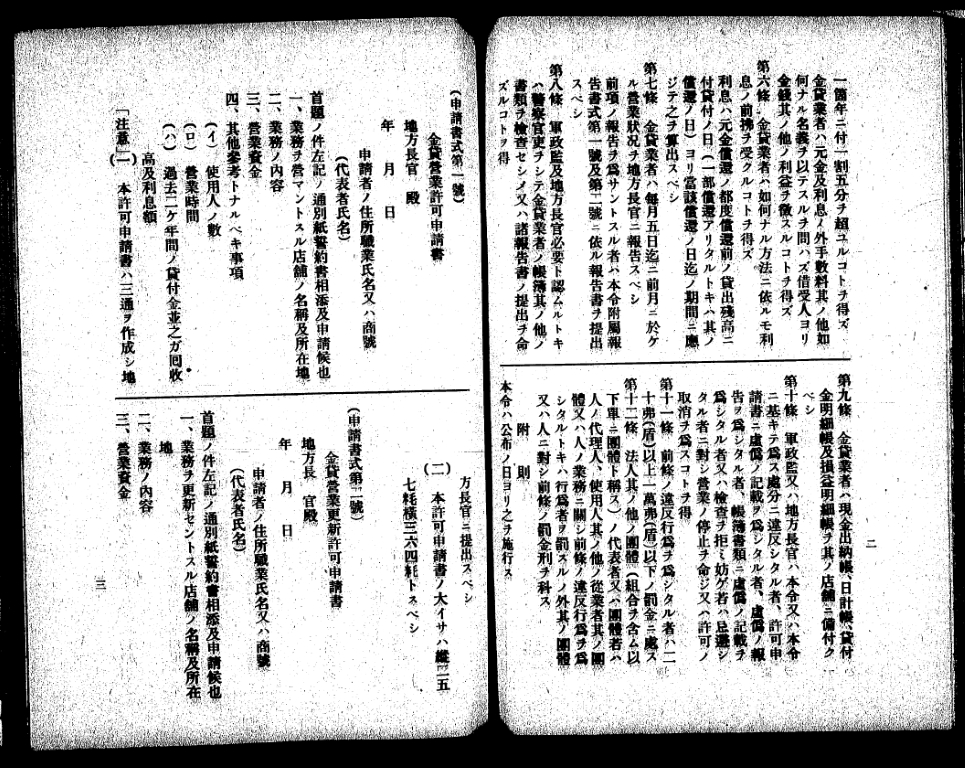 一箇年ニ付一割五分ヲ超ユルコトヲ得ズ
金貸業者ハ元金及利息ノ外手數料其ノ他如
何ナル名義ヲ以テスルヲ問ハズ借受人ヨリ
金錢其ノ他ノ利益ヲ徴スルコトヲ得ズ
第六條 金貸業者ハ如何ナル方法ニ依ルモ利
息ノ前拂ヲ受クルコトヲ得ズ
利息ハ元金償還ノ都度償還前ノ貸出殘高ニ
付貸付ノ日(一部償還アリタルトキハ其ノ
償還ノ日)ヨリ當該償還ノ日迄ノ期間ニ應
ジテ之ヲ算出スベシ
第七條 金貸業者ハ毎月五日迄ニ前月ニ於ケ
ル營業狀況ヲ地方長官ニ報告スベシ
前項ノ報告ヲ爲サントスル者ハ本令附屬報
告書式第一號及第二號ニ依ル報告書ヲ提出
スベシ
第八條 軍政監及地方長官必要ト認ムルトキ
ハ警察官吏ヲシテ金貸業者ノ帳簿其ノ他ノ
書類ヲ檢査セシメ又ハ諸報告書ノ提出ヲ命
ズルコトヲ得
第九條 金貸業者ハ現金出納帳、日計帳、貸付
金明細帳及損益明細帳ヲ其ノ店舗ニ備付ク
ベシ
第十條 軍政監又ハ地方長官ハ本令又ハ本令
ニ基キテ爲ス處分ニ違反シタル者、許可申
請書ニ虚僞ノ記載ヲ爲シタル者、虚僞ノ報
告ヲ爲シタル者、帳簿書類ニ虚僞ノ記載ヲ
爲シタル者又ハ檢査ヲ拒ミ妨ゲ若ハ忌避シ
タル者ニ對シ營業ノ停止ヲ命ジ又ハ許可ノ
取消ヲ爲スコトヲ得
第十一條 前條ノ違反行爲ヲ爲シタル者ハ二
十弗(盾)以上一萬弗(盾)以下ノ罰金ニ處ス
第十二條 法人其ノ他ノ團體(組合ヲ含ム以
下單ニ團體ト稱ス)ノ代表者又ハ團體若ハ
人ノ代理人、使用人其ノ他ノ從業者其ノ團
體又ハ人ノ業務ニ關シ前條ノ違反行爲ヲ爲
シタルトキハ行爲者ヲ罰スルノ外其ノ團體
又ハ人ニ對シ前條ノ罰金刑ヲ科ス
附 則
本令ハ公布ノ日ヨリ之ヲ施行ス
二
(申請書式第一號)
金貸營業許可申請書
年 月 日
地方長官 殿
申請者ノ住所職業氏名又ハ商號
(代表者氏名)
首題ノ件左記ノ通別紙誓約書相添及申請候也
一、業務ヲ營マントスル店舗ノ名稱及所在地
二、業務ノ内容
三、營業資金
四、其他參考トナルベキ事項
(イ) 使用人ノ數
(ロ) 營業時間
(ハ) 過去二ケ年間ノ貸付金並之ガ囘收
高及利息額
「注意(一) 本許可申請書ハ三通ヲ作成シ地
方長官ニ提出スベシ
(二) 本許可申請書ノ大イサハ縱二五
七粍橫三六四粍トスベシ
(申請書式第二號)
金貸營業更新許可申請書
年 月 日
地方長 官殿
申請者ノ住所職業氏名又ハ商號
(代表者氏名)
首題ノ件左記ノ通別紙誓約書相添及申請候也
一、業務ヲ更新セントスル店舗ノ名稱及所在
地
二、業務ノ内容
三、營業資金
三